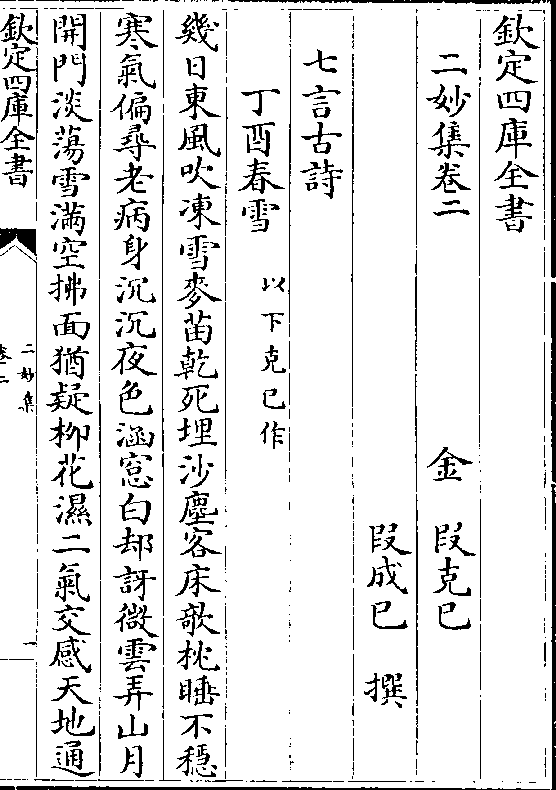 欽定四庫全書
二妙集卷二
金　段克己
段成己　撰
七言古詩
丁酉春雪　以下克己作
幾日東風吹凍雪麥苗乾死埋沙塵客床欹枕睡不穩
寒氣偏尋老病身沉沉夜色涵窓白却訝微雲弄山月
開門淡蕩雪滿空拂面猶疑柳花濕二氣交感天地通
欽定四庫全書
二妙集
卷二
一